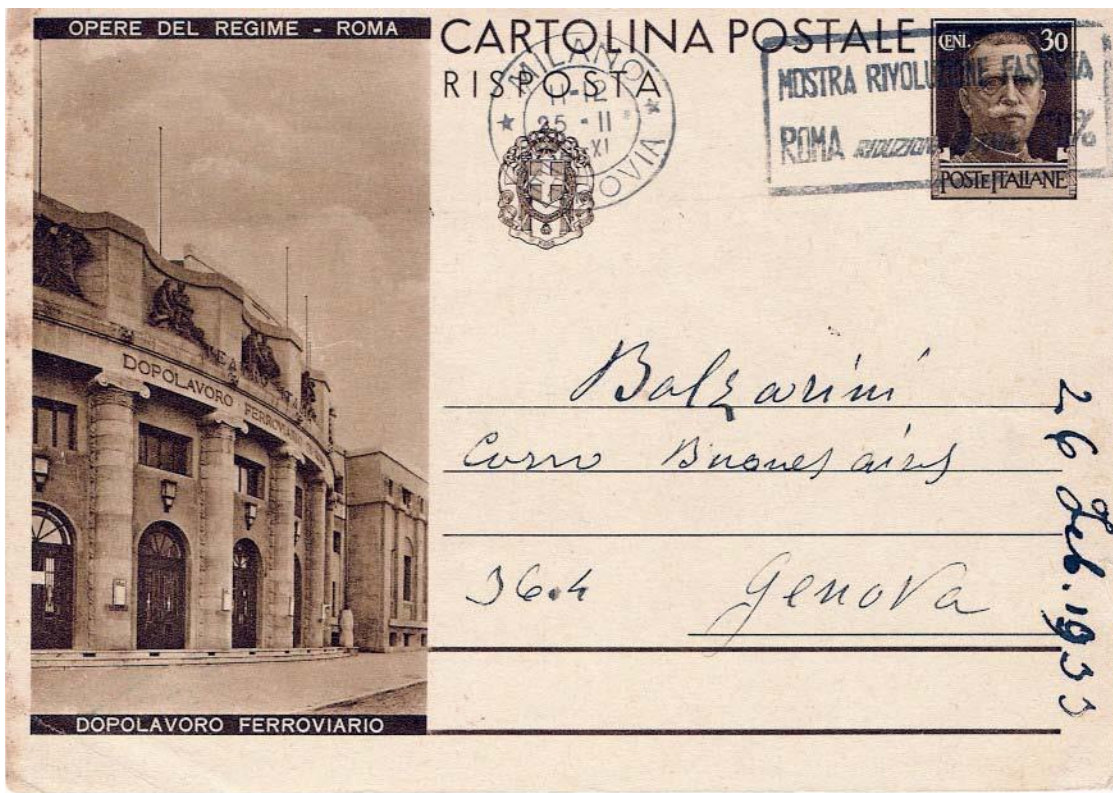 OPERE DEL REGIME - ROMA
DOPOLAVORO FERROVIARIO
DOPOLAVORO FERROVIARIO
CARTOLINA POSTALE
RISPOSTA
MILANO
11-12
25 · II
XI
OVIA
MOSTRA RIVOLUZIONE FASCISTA
ROMA RIDUZIONE
CENT. 30
POSTE ITALIANE
Balzarini
Corso Buones aires
36.4 Genova
26 Feb. 1933